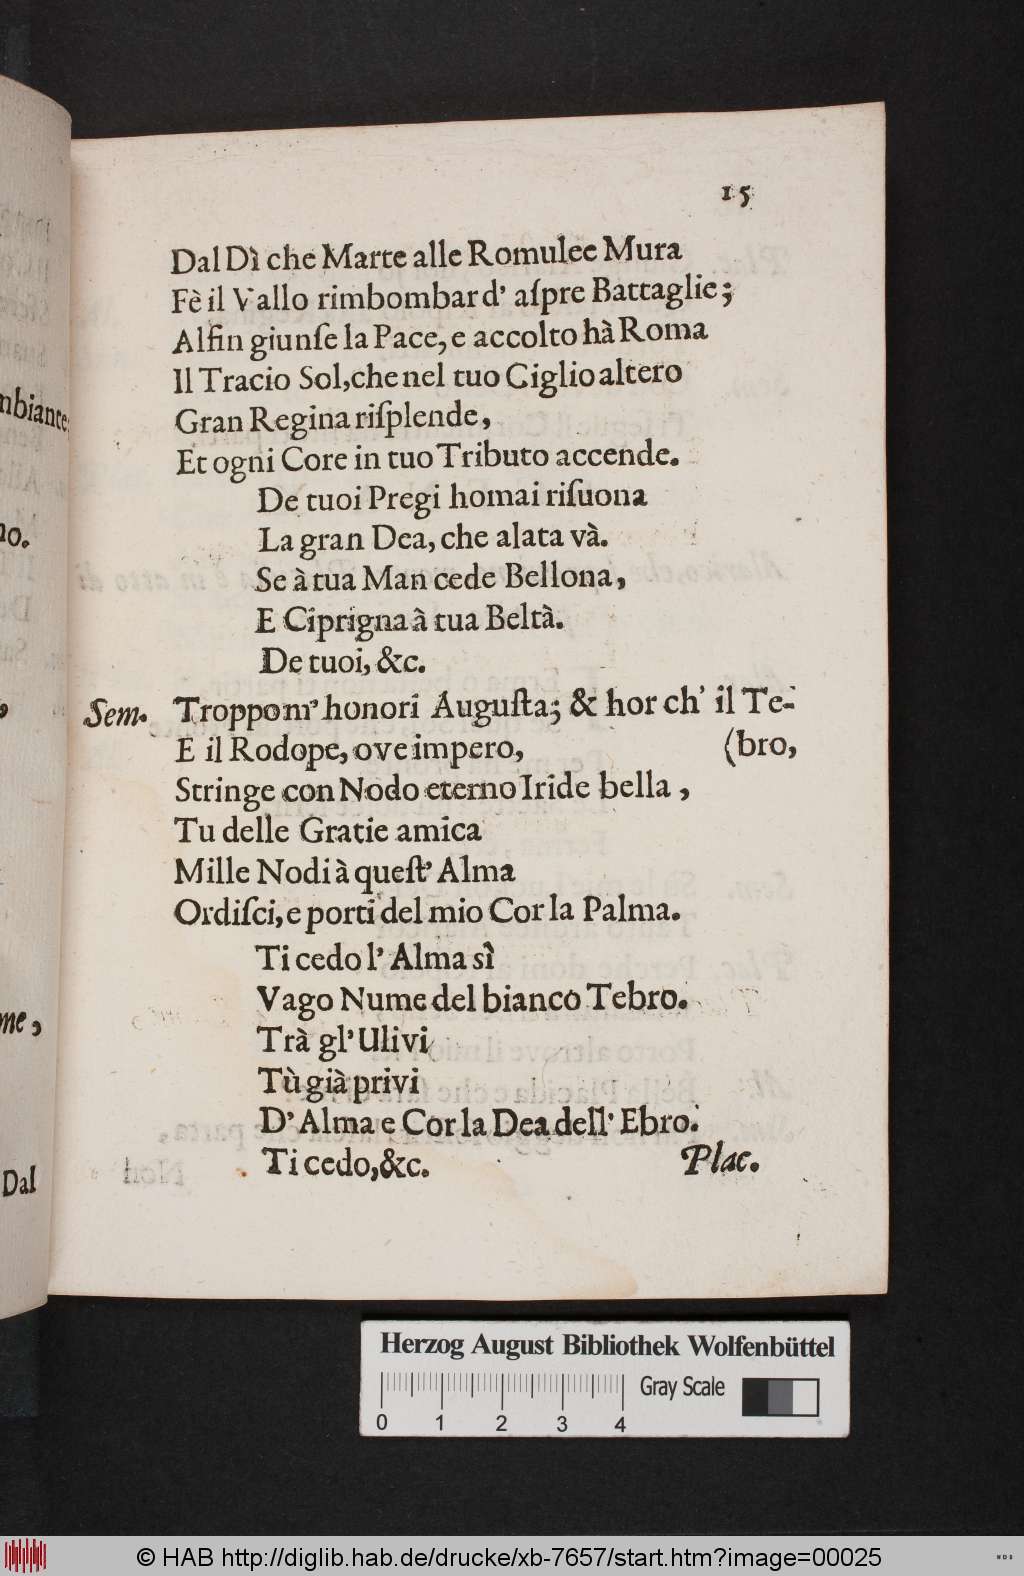 15
Dal Dì che Marte alle Romulee Mura
Fè il Vallo rimbombar d' aſpre Battaglie;
Alfin giunſe la Pace, e accolto hà Roma
Il Tracio Sol, che nel tuo Ciglio altero
Gran Regina riſplende,
Et ogni Core in tuo Tributo accende.
De tuoi Pregi homai riſuona
La gran Dea, che alata và.
Se à tua Man cede Bellona,
E Ciprigna à tua Beltà.
De tuoi, &c.
Sem. Tropp om' honori Auguſta; & hor ch' il Te-
E il Rodope, ove impero, (bro,
Stringe con Nodo eterno Iride bella,
Tu delle Gratie amica
Mille Nodi à queſt' Alma
Ordiſci, e porti del mio Cor la Palma.
Ti cedo l' Alma sì
Vago Nume del bianco Tebro.
Trà gl' Ulivi
Tù già privi
D' Alma e Cor la Dea dell' Ebro.
Ti cedo, &c. Plac.
mbiance:
no.
me,
Dal
Herzog August Bibliothek Wolfenbüttel
Gray Scale
0 1 2 3 4
© HAB http://diglib.hab.de/drucke/xb-7657/start.htm?image=00025